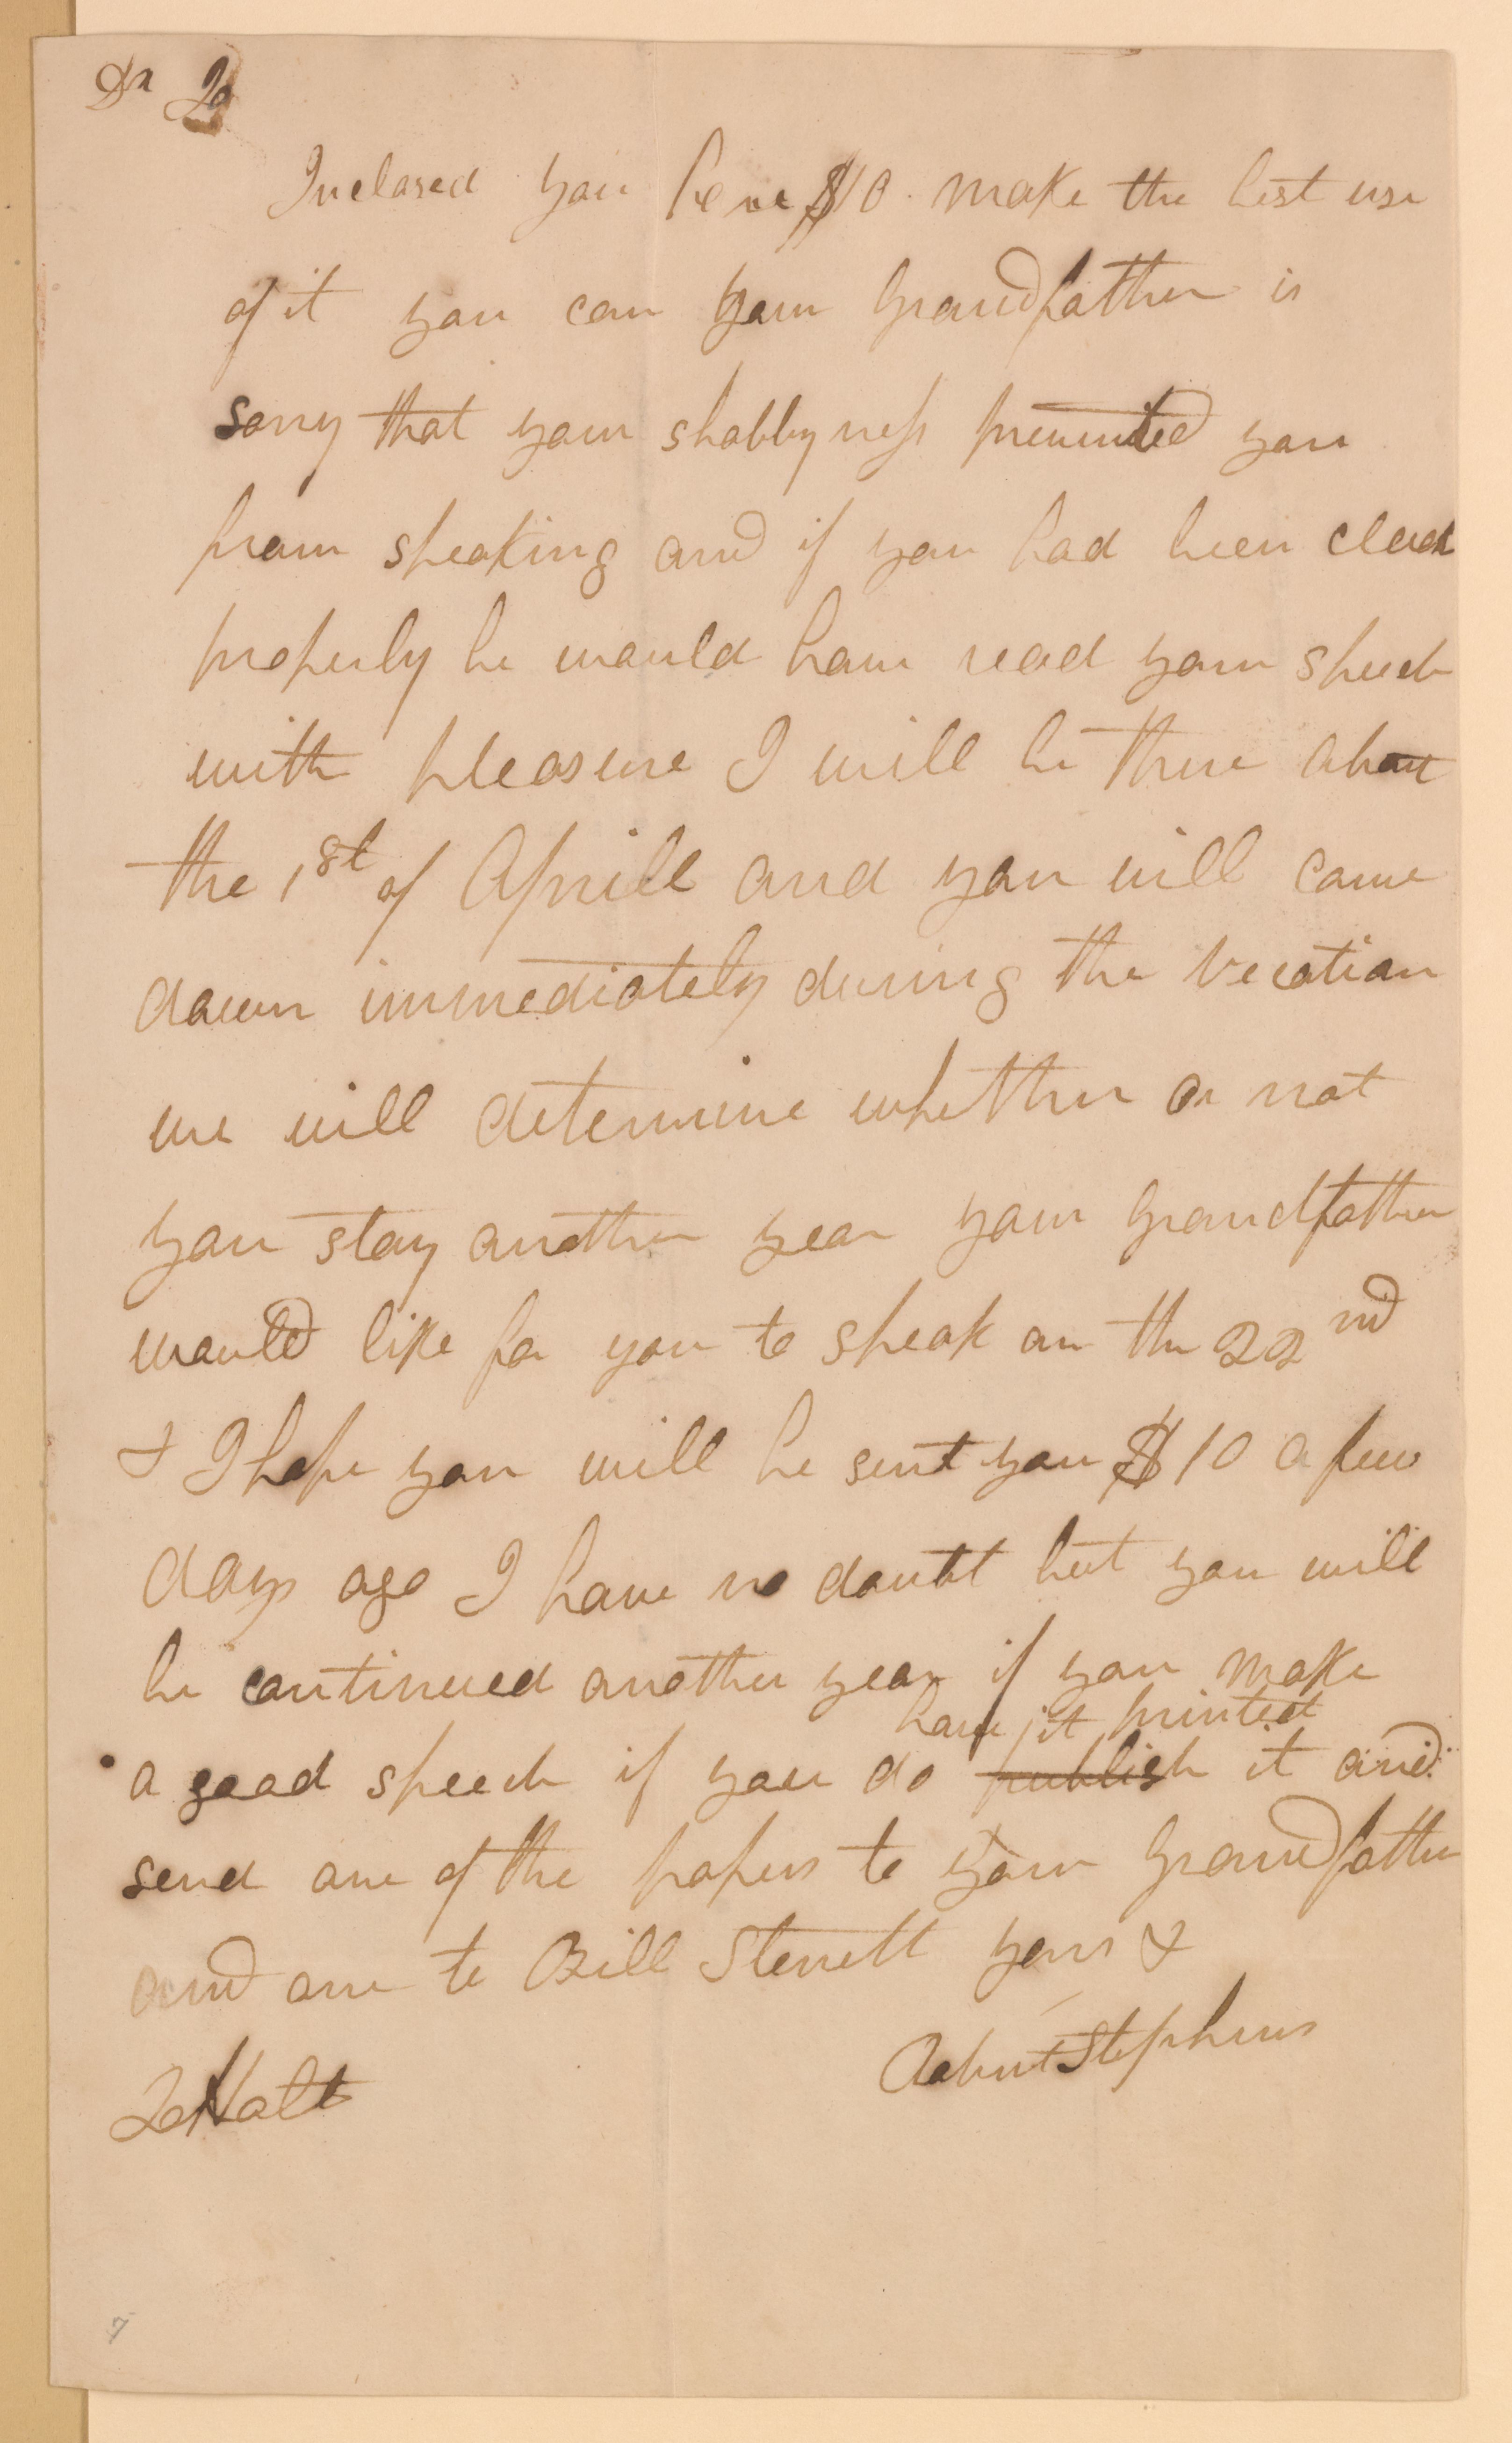 Dr Jo
Inclosed you have $10 make the best use
of it you can your Grandfather is
sorry that your shabbyness prevented you
from speaking and if you had been clad
properly he would have read your speech
with pleasure I will be there about
the 1st of Aprill and you will come
down immediately during the vecation
we will determine whether or not
you stay another year your Grandfather
would like for you to speak on the 22nd
& I hope you will he sent you $10 a few
days ago I have no doubt but you will
be continued another year if you make
have it printed
a good speech if you do publish it and
send one of the papers to your Grandfather
and one to Bill Sterrett yours &
Stephens
Jo Holt
7